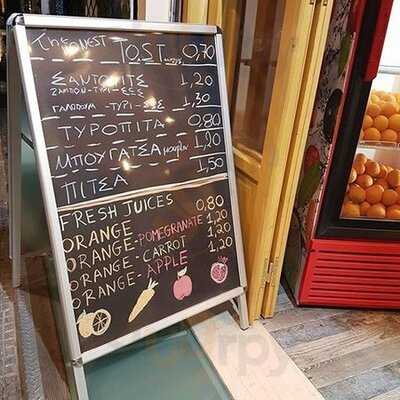 ΤΟΣΤ 0,70
ΣΑΝΤΟΥΙΤΣ 1,20
ΖΑΜΠΟΝ-ΤΥΡΙ-
ΓΑΛΟΠΟΥΛ-ΤΥΡΙ- 1,30
ΤΥΡΟΠΙΤΑ 0,80
ΜΠΟΥΓΑΤΣΑ 1,20
ΠΙΤΣΑ 1,50
FRESH JUICES
ORANGE 0,80
ORANGE-POMEGRANATE 1,20
ORANGE-CARROT 1,20
ORANGE-APPLE 1,20